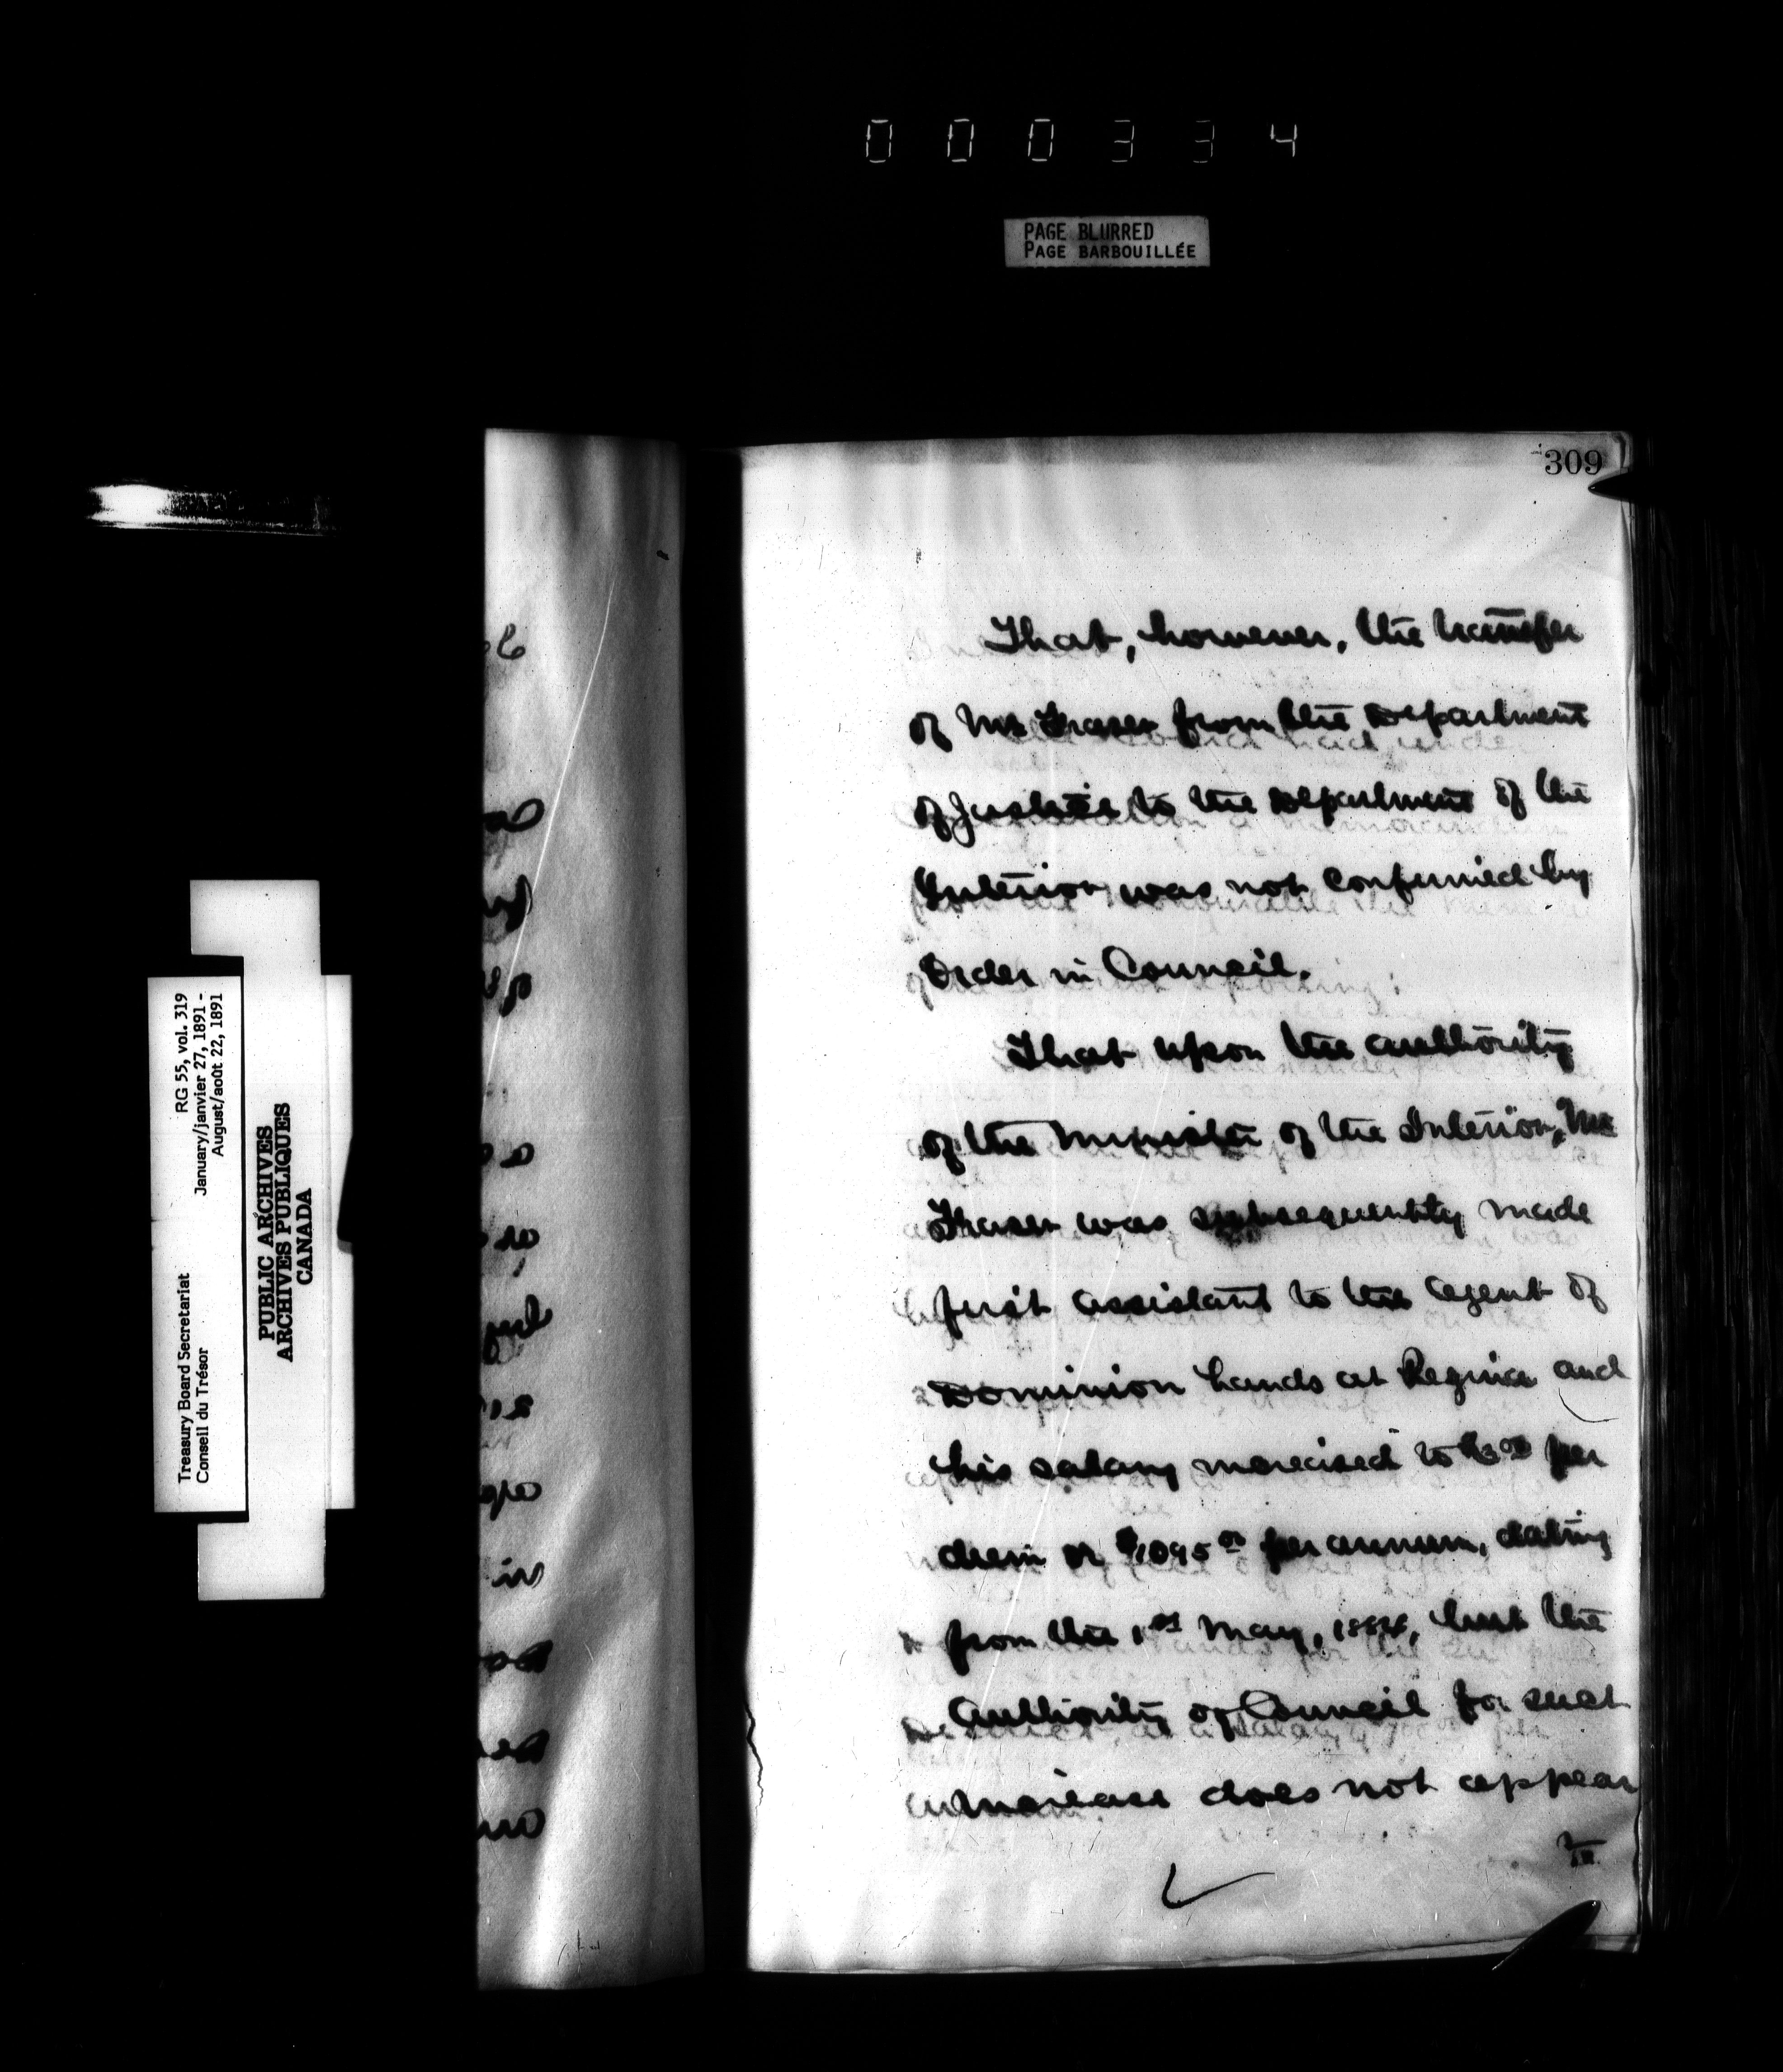 000334
PAGE BLURRED
PAGE BARBOUILLÉE
309
That, however, the transfer
of Mr Fraser from the Department
of Justice to the Department of the
Interior was not confirmed by
Order in Council.
That upon the authority
of the Minister of the Interior, Mr
Fraser was subsequently made
first assistant to the agent of
Dominion Lands at Regina and
his salary increased to $3.00 per
diem or $1,095.00 per annum, dating
from the 1st May, 1884, but the
authority of Council for such
increase does not appear
Treasury Board Secretariat RG 55, vol. 319
Conseil du Trésor January/janvier 27, 1891 -
August/août 22, 1891
PUBLIC ARCHIVES
ARCHIVES PUBLIQUES
CANADA